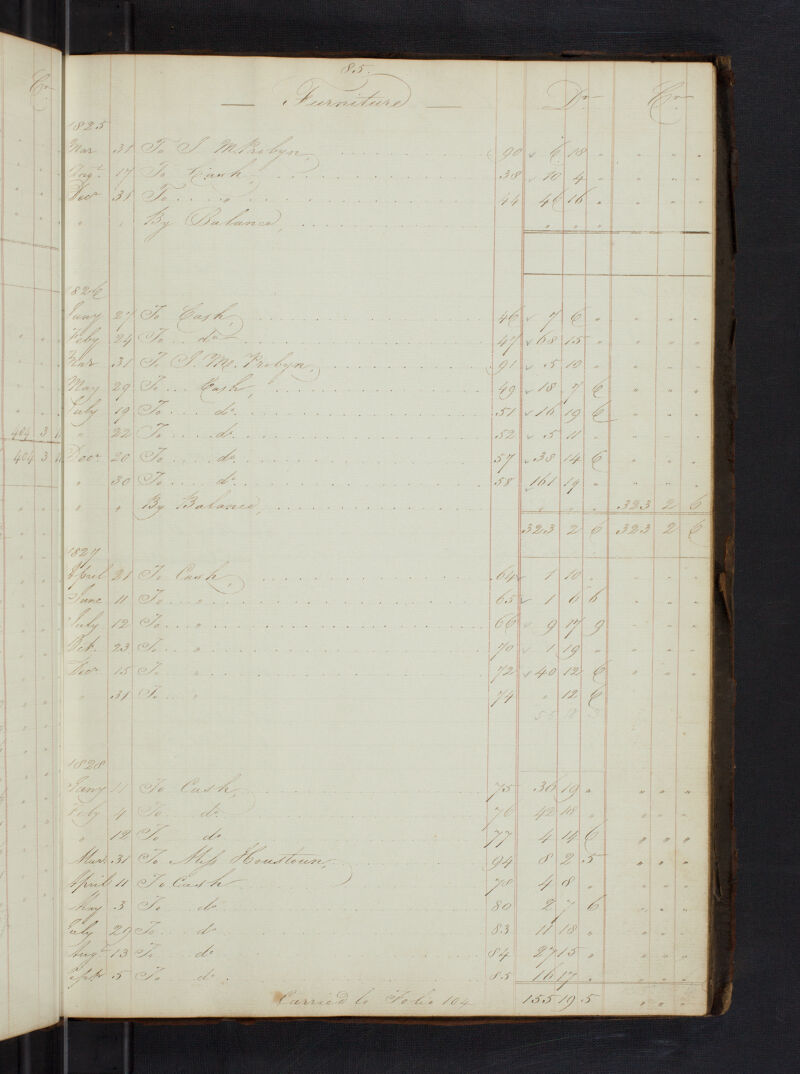 Cr
404 3
404 3
85.
— Furniture — Dr Cr
1825
Mar 31 To J McProbyn, 90 6 18 "
Augt 17 To Cash, 38 10 4 "
Decr 31 To " 44 46 16 "
" " By Balance, " " "
1826
Jany 27 To Cash, 46 7 6 "
Feby 24 To do 47 68 15 "
Mar 31 To J. Mc. Probyn, 91 5 10 "
May 29 To Cash, 49 18 7 6
July 19 To do 51 16 19 6
" 22 To do 52 5 11 "
Decr 20 To do 57 38 14 6
" 30 To do 58 161 19 "
" " By Balance, 323 2 6
323 2 6 323 2 6
1827
April 21 To Cash, 64 1 10 "
June 11 To " 65 1 6 6
July 12 To " 66 9 17 9
Oct. 23 To " 70 1 19 "
Decr 15 To " 72 40 12 6
" 31 To " 74 " 12 6
55 18 3
1828
Jany 11 To Cash, 75 36 19 "
Feby 4 To do 76 42 18 "
" 12 To do 77 4 14 6
Mar. 31 To Miss Houstoun, 94 8 2 5
April 11 To Cash 78 4 8 "
May 3 To do 80 2 7 6
July 29 To do 83 11 18 "
Augt 13 To do 84 27 15 "
Septr 5 To do 85 16 17 "
Carried to Folio 104 155 19 5